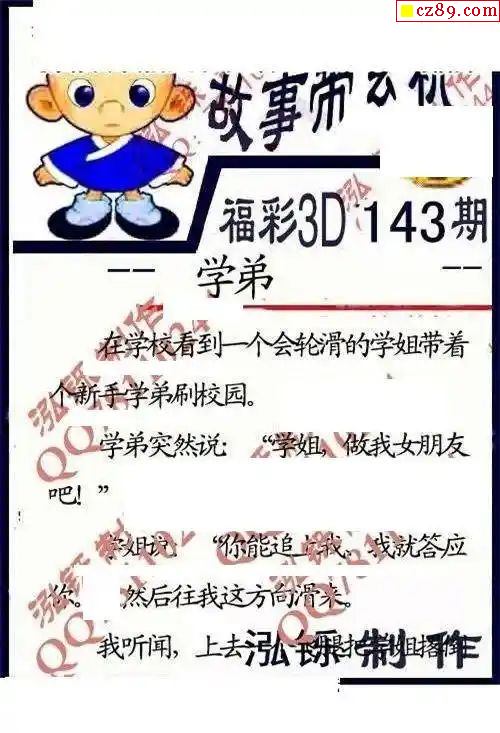 cz89.com
故事带玄机
福彩3D 143期
-- 学弟 --
在学校看到一个会轮滑的学姐带着
个新手学弟刷校园。
学弟突然说：“学姐，做我女朋友
吧！”
学姐说：“你能追上我，我就答应
你。 然后往我这方向滑来。
我听闻，上去一 腿把学姐撂倒
泓铄制作